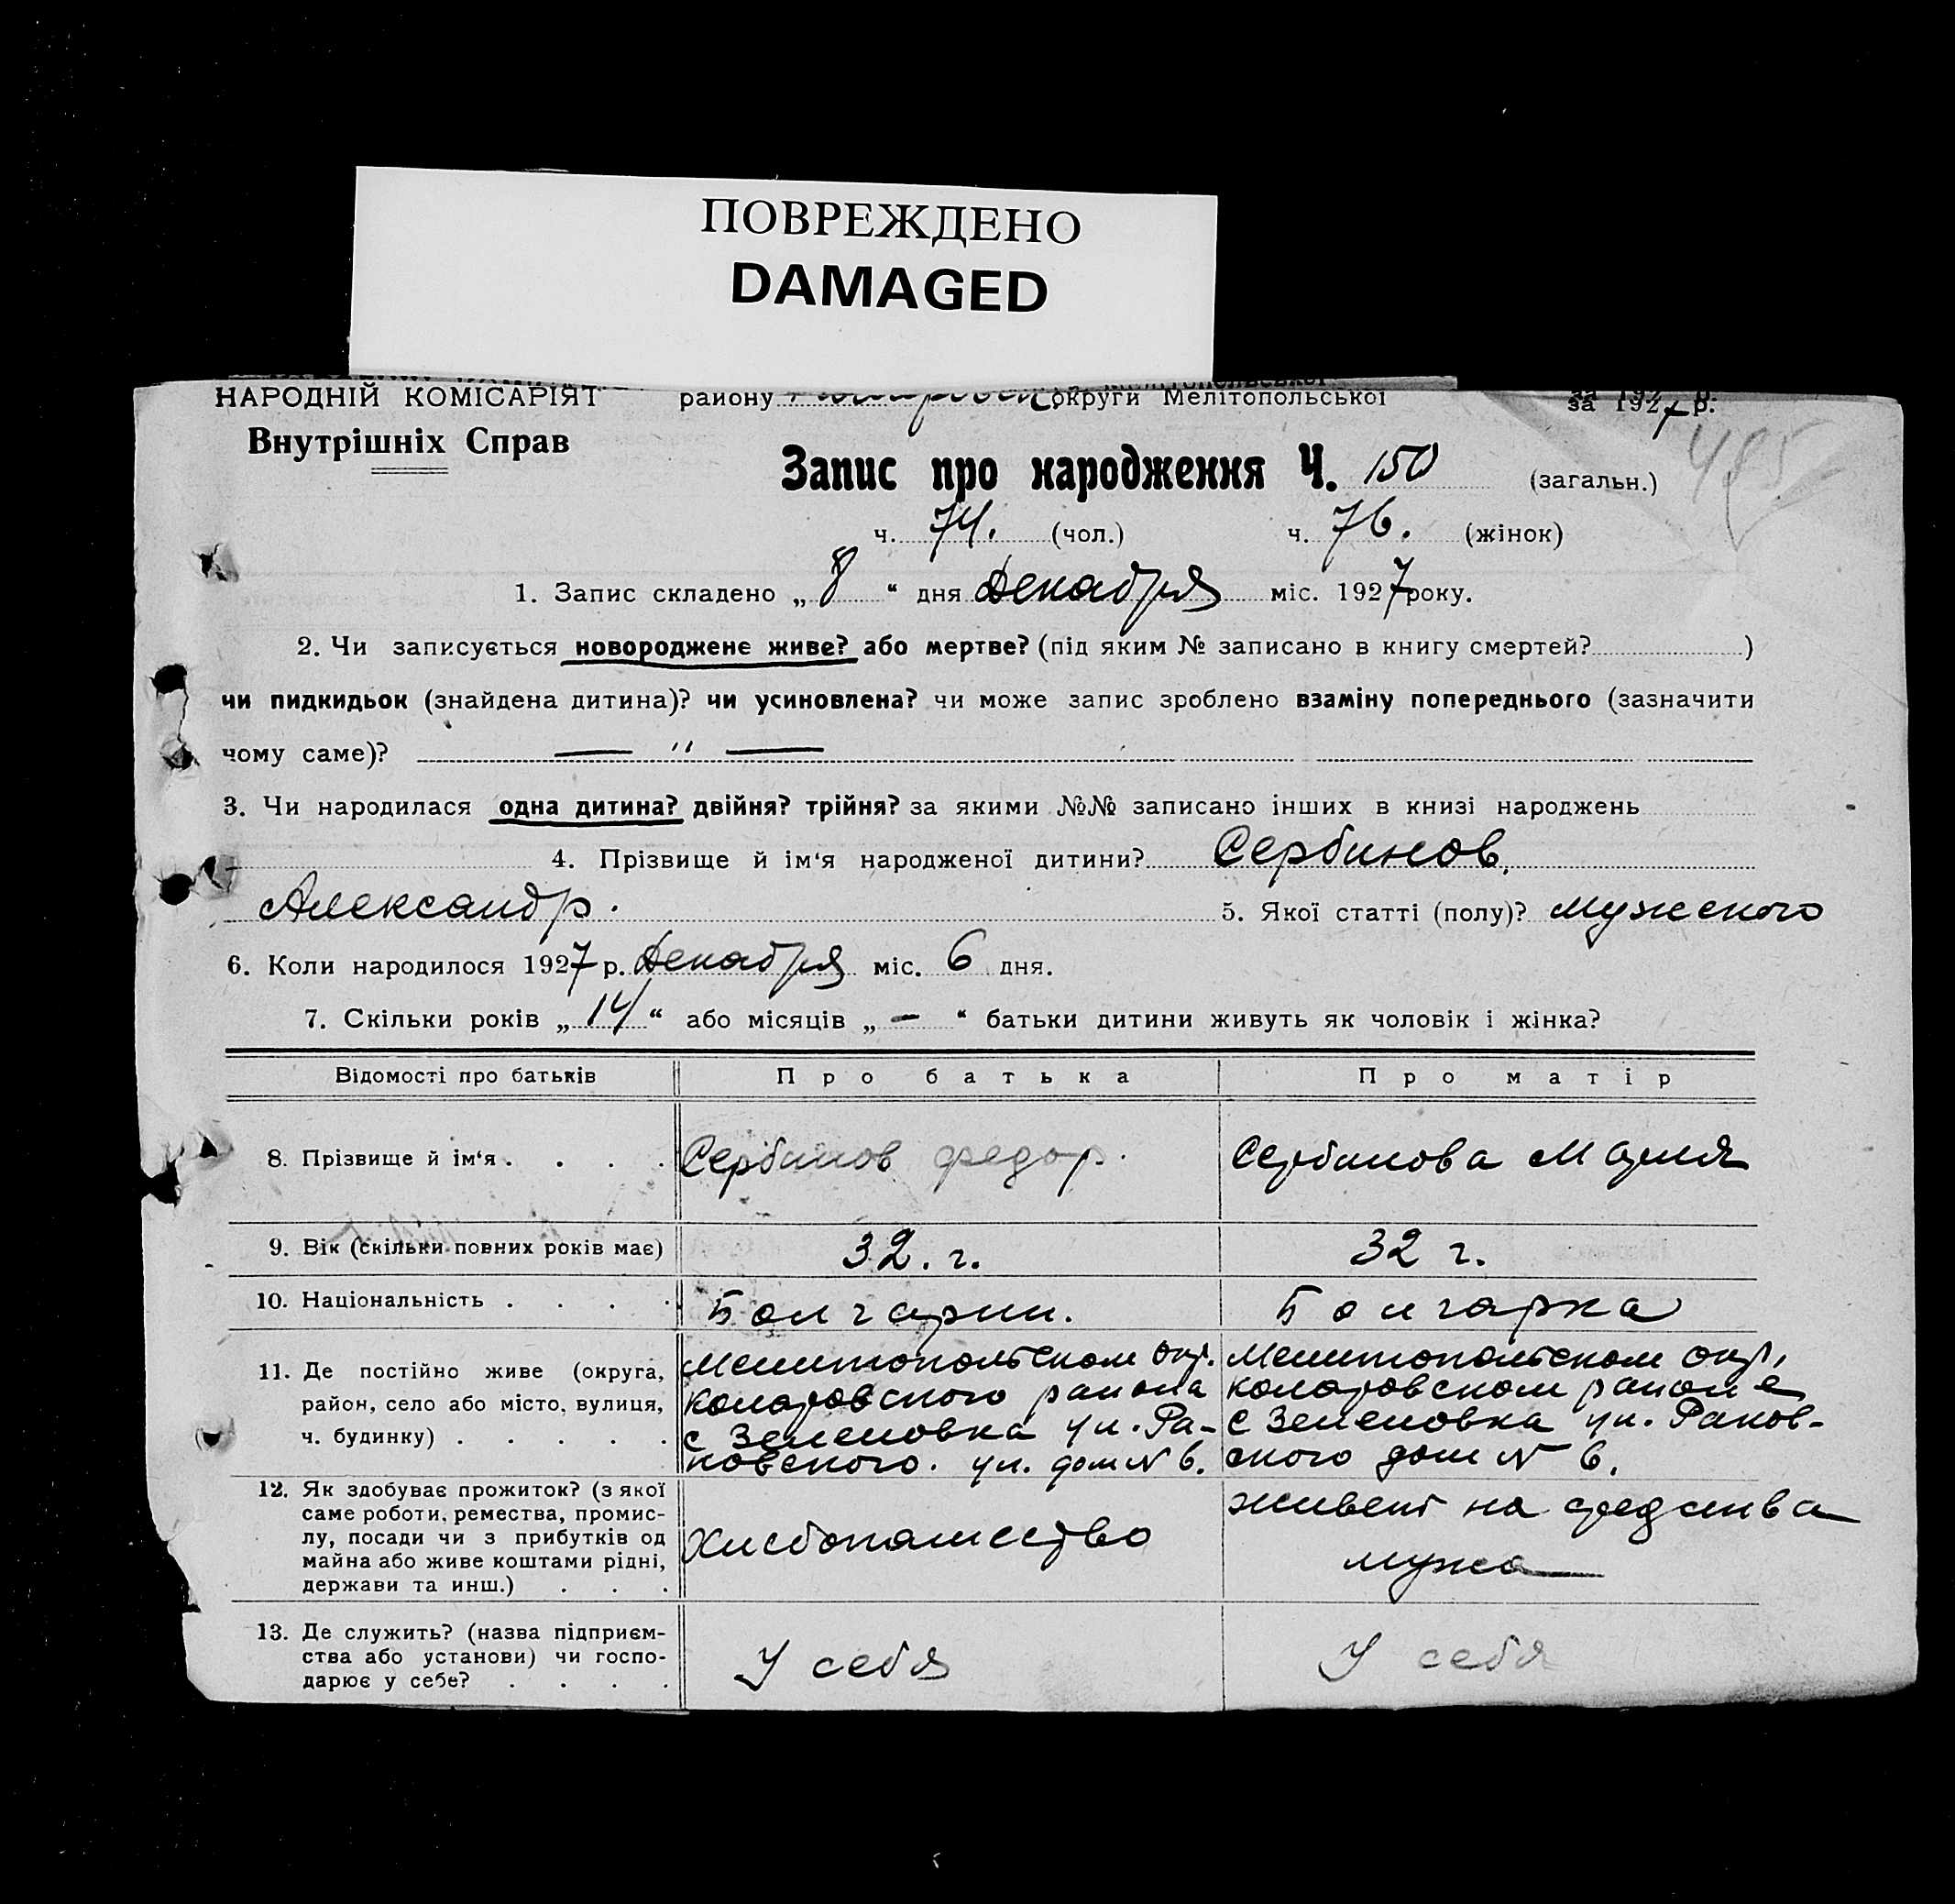 ПОВРЕЖДЕНО
DAMAGED
НАРОДНІЙ КОМІСАРІЯТ району округи Мелітопольської за 1927 р.
Внутрішніх Справ
485
Запис про народження Ч. 150 (загальн.)
ч. 74. (чол.) ч. 76. (жінок)
1. Запис складено „ 8 “ дня Декабря міс. 1927 року.
2. Чи записується новороджене живе? або мертве? (під яким № записано в книгу смертей? )
чи пидкидьок (знайдена дитина)? чи усиновлена? чи може запис зроблено взаміну попереднього (зазначити
чому саме)? — " —
3. Чи народилася одна дитина? двійня? трійня? за якими №№ записано інших в книзі народжень
4. Прізвище й ім‘я народженої дитини? Сербинов,
Александр. 5. Якої статті (полу)? мужского
6. Коли народилося 1927 р. Декабря міс. 6 дня.
7. Скільки років „ 14 “ або місяців „ — “ батьки дитини живуть як чоловік і жінка?
Відомості про батьків Про батька Про матір
8. Прізвище й ім‘я . . . . Сербинов Федор. Сербинова Мария
9. Вік (скільки повних років має) 32. г. 32 г.
10. Національність . . . . Болгарин. Болгарка
11. Де постійно живе (округа, Мелитопольском Окр. Мелитопольском Окр,
район, село або місто, вулиця, Коларовского района Коларовском районе
ч. будинку) . . . . . с Зеленовка ул. Ра- с Зеленовка ул. Раков-
ковского. ул. дом № 6. ского дом № 6.
12. Як здобуває прожиток? (з якої
саме роботи, ремества, промис-
лу, посади чи з прибутків од
майна або живе коштами рідні,
держави та инш.) . . .
Хлебопашество
живет на средства
мужа
13. Де служить? (назва підприєм-
ства або установи) чи госпо-
дарює у себе? . . . .
У себя У себя